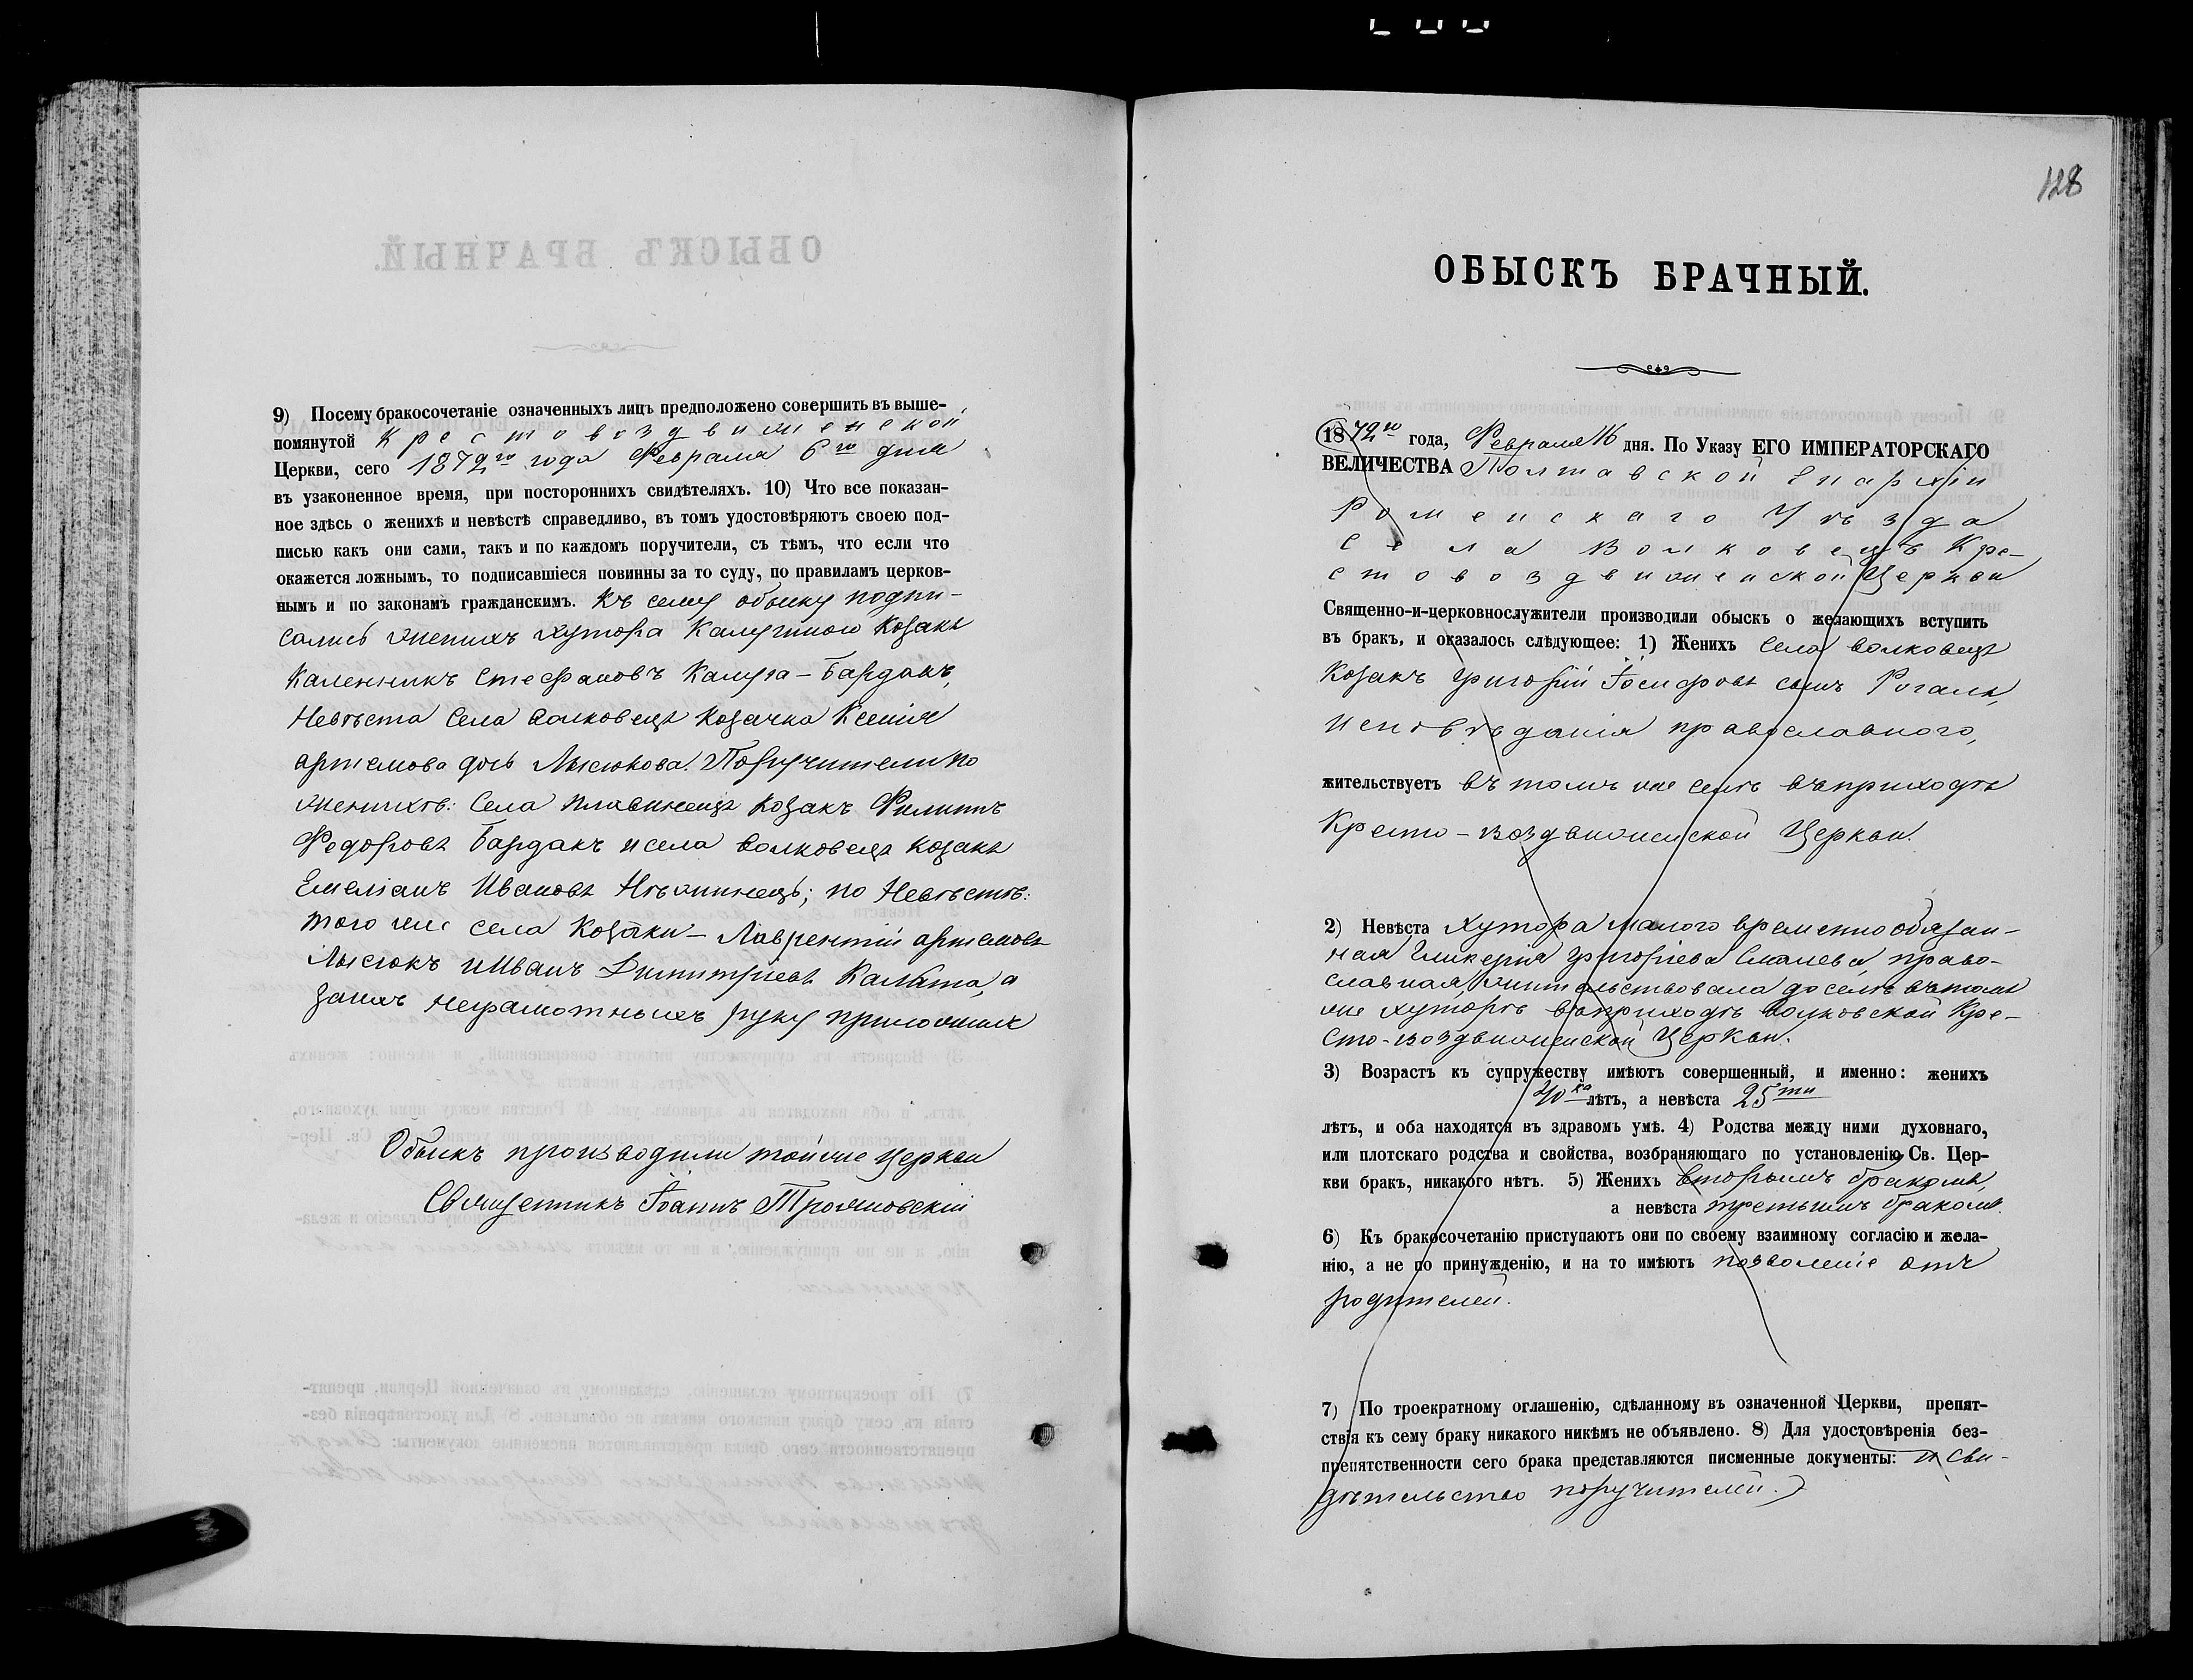 9) Посему бракосочетаніе означенныхъ лицъ предположено совершить въ выше-
помянутой Крестовоздвиженской
Церкви, сего 1872го года Февраля 6го дня
въ узаконенное время, при постороннихъ свидѣтеляхъ. 10) Что все показан-
ное здѣсь о женихѣ и невѣстѣ справедливо, въ томъ удостовѣряютъ своею под-
писью какъ они сами, такъ и по каждомъ поручители, съ тѣмъ, что если что
окажется ложнымъ, то подписавшіеся повинны за то суду, по правиламъ церков-
нымъ и по законамъ гражданскимъ. Къ сему обыску подпи-
сались женихъ хутора Козакъ
Каленникъ Стефановъ Калуга-Бардакъ,
Невѣста Села Волковецъ козачка Ксенія
Артемова дочь Лысюкова. Поручители по
женихѣ: Села Плавинещъ Козакъ Филиппъ
Федоровъ Бардакъ и села Волковецъ козакъ
Емеліанъ Ивановъ Нѣжинецъ; по Невѣстѣ:
того же села Козаки - Лаврентій Артемовъ
Лысюкъ и Иванъ Димитріевъ Калита, а
за нихъ неграмотныхъ руку приложилъ
Обыскъ производили той же Церкви
Священникъ Іоаннъ Трояновскій
128
ОБЫСКЪ БРАЧНЫЙ.
1872го года, Февраля 16 дня. По Указу ЕГО ИМПЕРАТОРСКАГО
ВЕЛИЧЕСТВА Полтавской Епархіи
Роменскаго Уѣзда
Села Волковецъ Кре-
стовоздвиженской Церкви
Священно-и-церковнослужители производили обыскъ о желающихъ вступить
въ бракъ, и оказалось слѣдующее: 1) Женихъ Села Волковецъ
Козакъ Григорій Іосифовъ сынъ Рогаль,
исповѣданія православного,
жительствуетъ въ томъ же селѣ въ приходѣ
Кресто-воздвиженской Церкви.
2) Невѣста Хутора Малого временнообязан-
ная Гликерія Григоріева право-
славная, жительствовала доселѣ въ томъ
же хуторѣ въ приходѣ Волковской Кре-
сто-воздвиженской Церкви.
3) Возрастъ къ супружеству имѣютъ совершенный, и именно: женихъ
40ка лѣтъ, а невѣста 25ти
лѣтъ, и оба находятся въ здравомъ умѣ. 4) Родства между ними духовнаго,
или плотскаго родства и свойства, возбраняющаго по установленію Св. Цер-
кви бракъ, никакого нѣтъ. 5) Женихъ вторымъ бракомъ,
а невѣста третьимъ бракомъ.
6) Къ бракосочетанію приступаютъ они по своему взаимному согласію и жела-
нію, а не по принужденію, и на то имѣютъ позволеніе отъ
родителей.
7) По троекратному оглашенію, сдѣланному въ означенной Церкви, препят-
ствія къ сему браку никакого никѣмъ не объявлено. 8) Для удостовѣренія без-
препятственности сего брака представляются писменные документы: и сви-
дѣтельство поручителей.